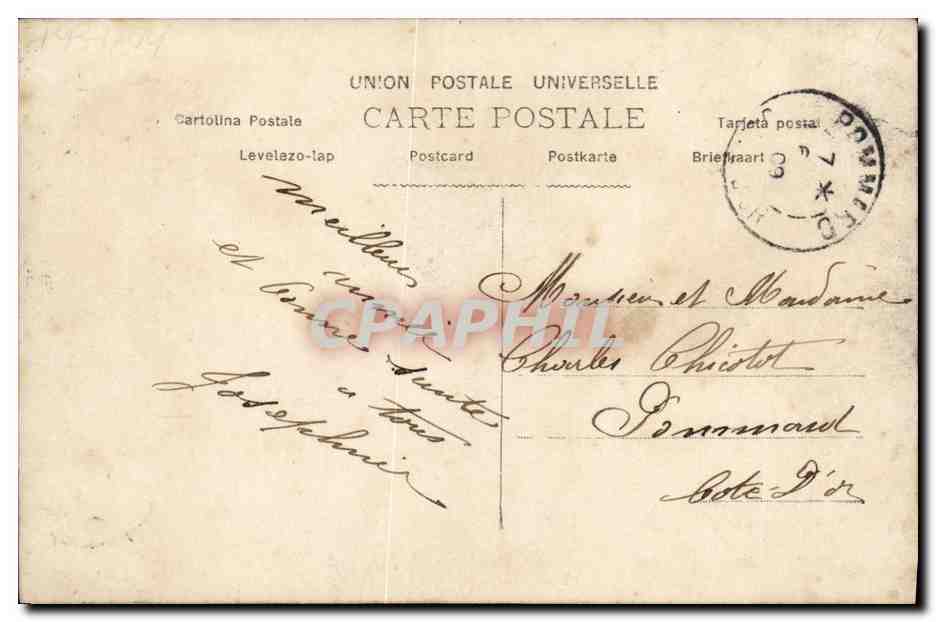 UNION POSTALE UNIVERSELLE
CARTE POSTALE
Cartolina Postale Tarjeta postal
Levelezo-lap Postcard Postkarte Briefkaart
POMMARD
7 * 09
D'OR
Meilleurs
et bonne santé
a tous
Josephine
Monsieur et Madame
Charles Chicotot
Pommard
Cote-D'or
CPAPHIL